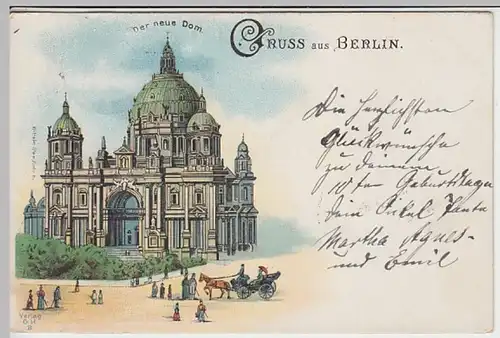 Der neue Dom.
GRUSS aus BERLIN.
Die herzlichsten
Glückwünsche
zu deinem
10ten Geburtstage
dein Onkel Tante
Martha Agnes
und Emil
Verlag